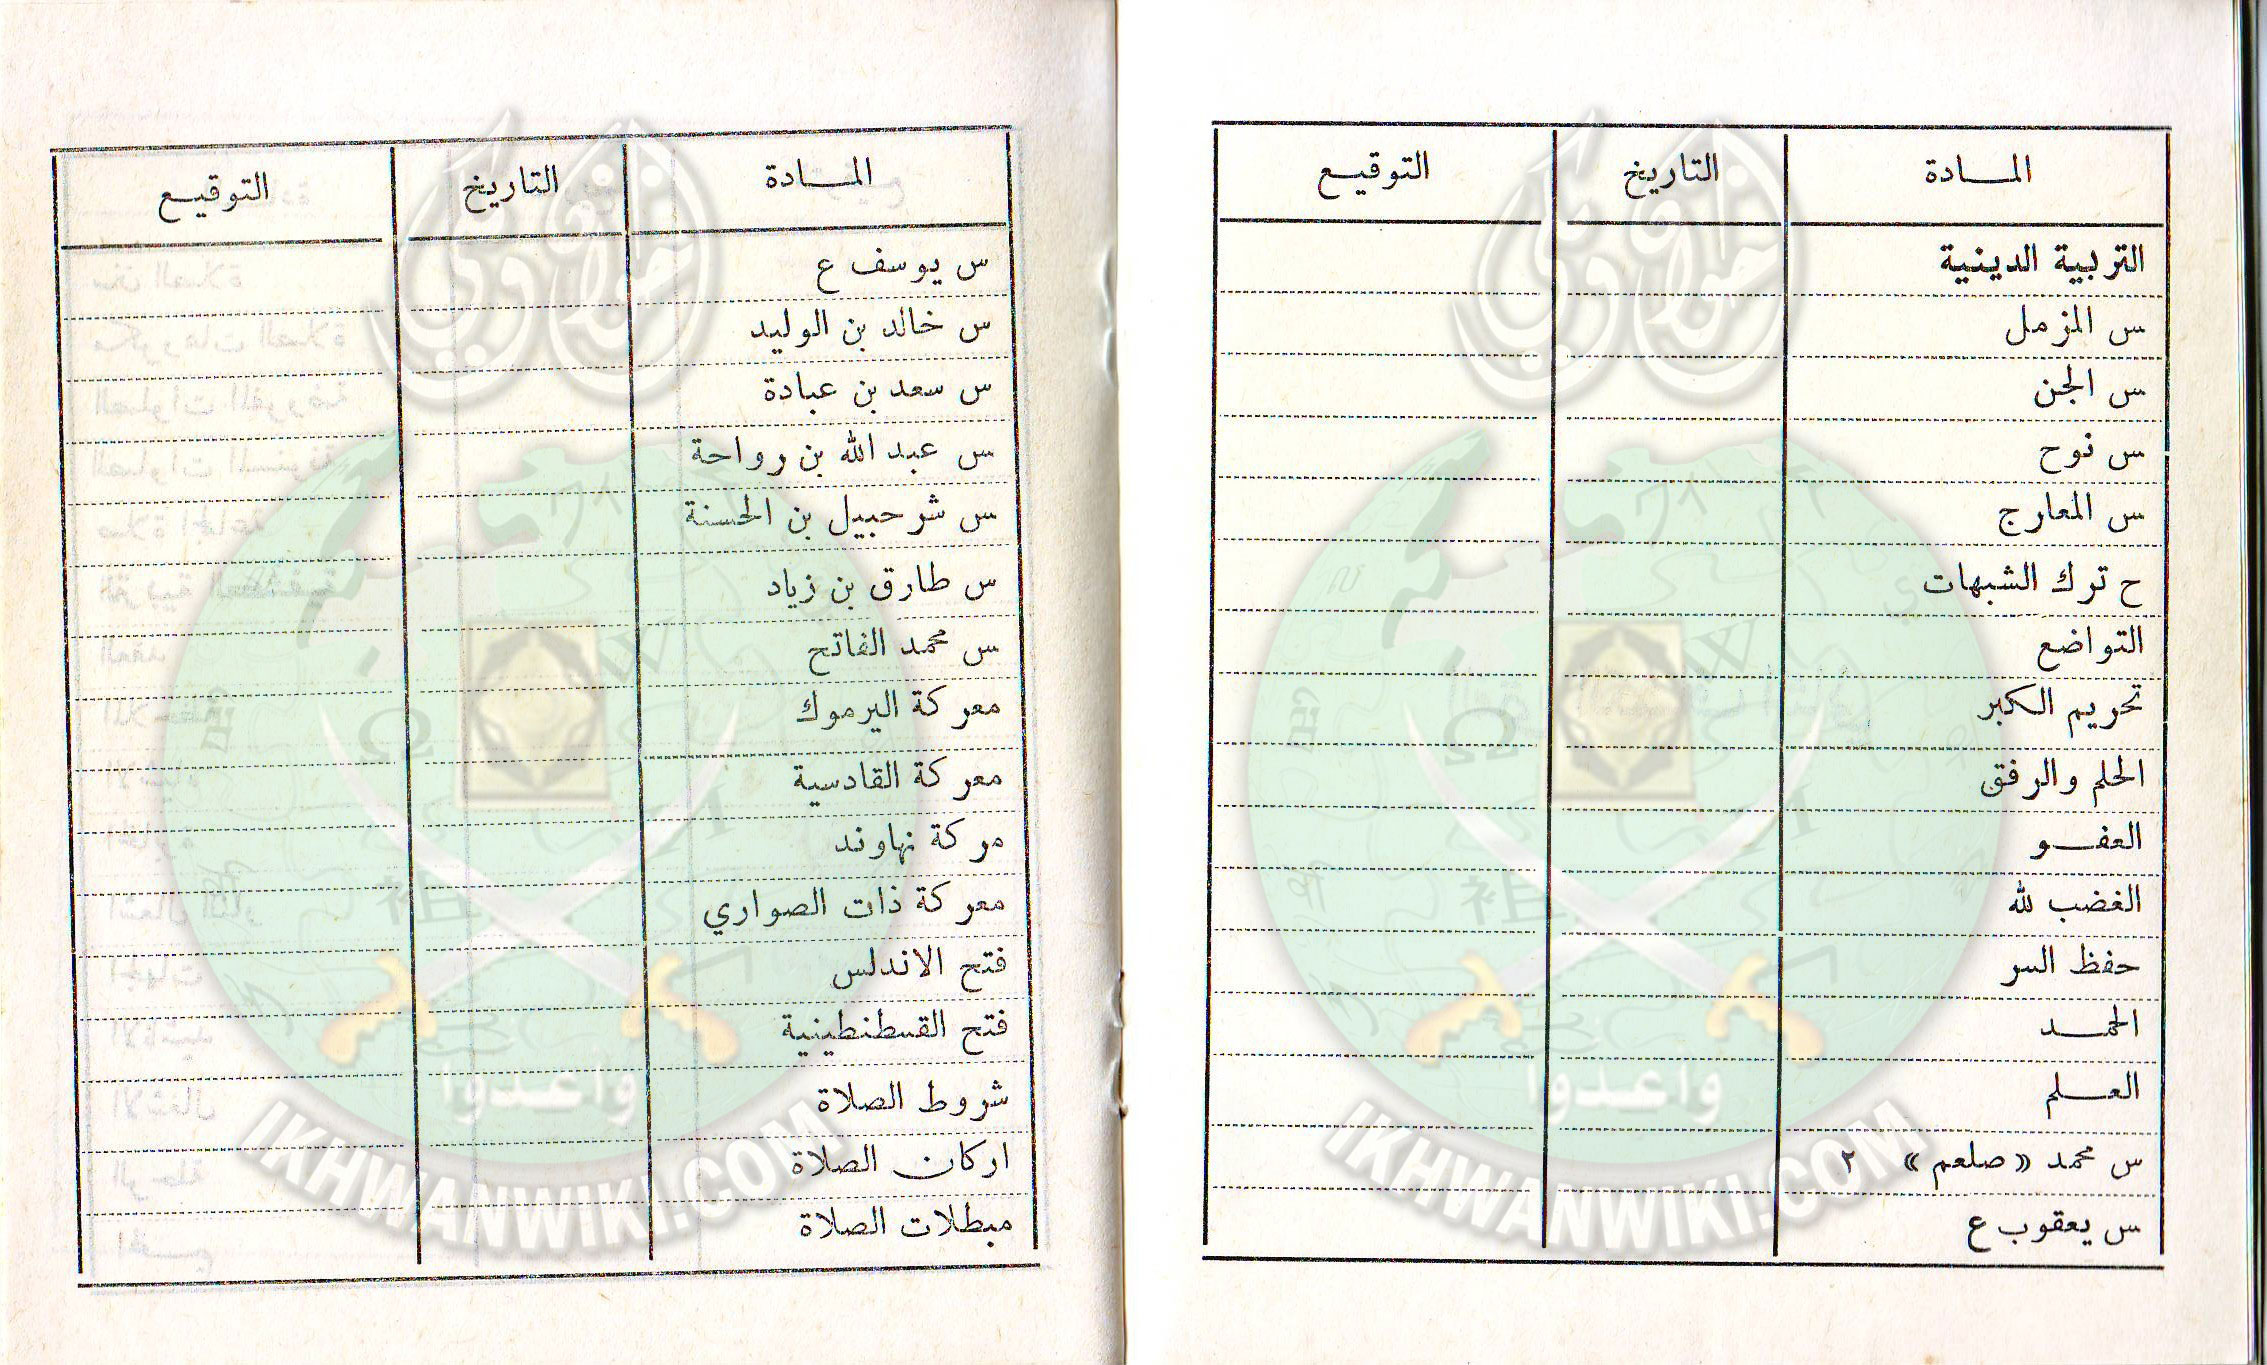 المادة التاريخ التوقيع
التربية الدينية
س المزمل
س الجن
س نوح
س المعارج
ح ترك الشبهات
التواضع
تحريم الكبر
الحلم والرفق
العفو
الغضب لله
حفظ السر
الحمد
العلم
س محمد «صلعم» ٢
س يعقوب ع
المادة التاريخ التوقيع
س يوسف ع
س خالد بن الوليد
س سعد بن عبادة
س عبد الله بن رواحة
س شرحبيل بن الحسنة
س طارق بن زياد
س محمد الفاتح
معركة اليرموك
معركة القادسية
مركة نهاوند
معركة ذات الصواري
فتح الاندلس
فتح القسطنطينية
شروط الصلاة
اركان الصلاة
مبطلات الصلاة
واعدوا
IKHWANWIKI.COM
واعدوا
IKHWANWIKI.COM